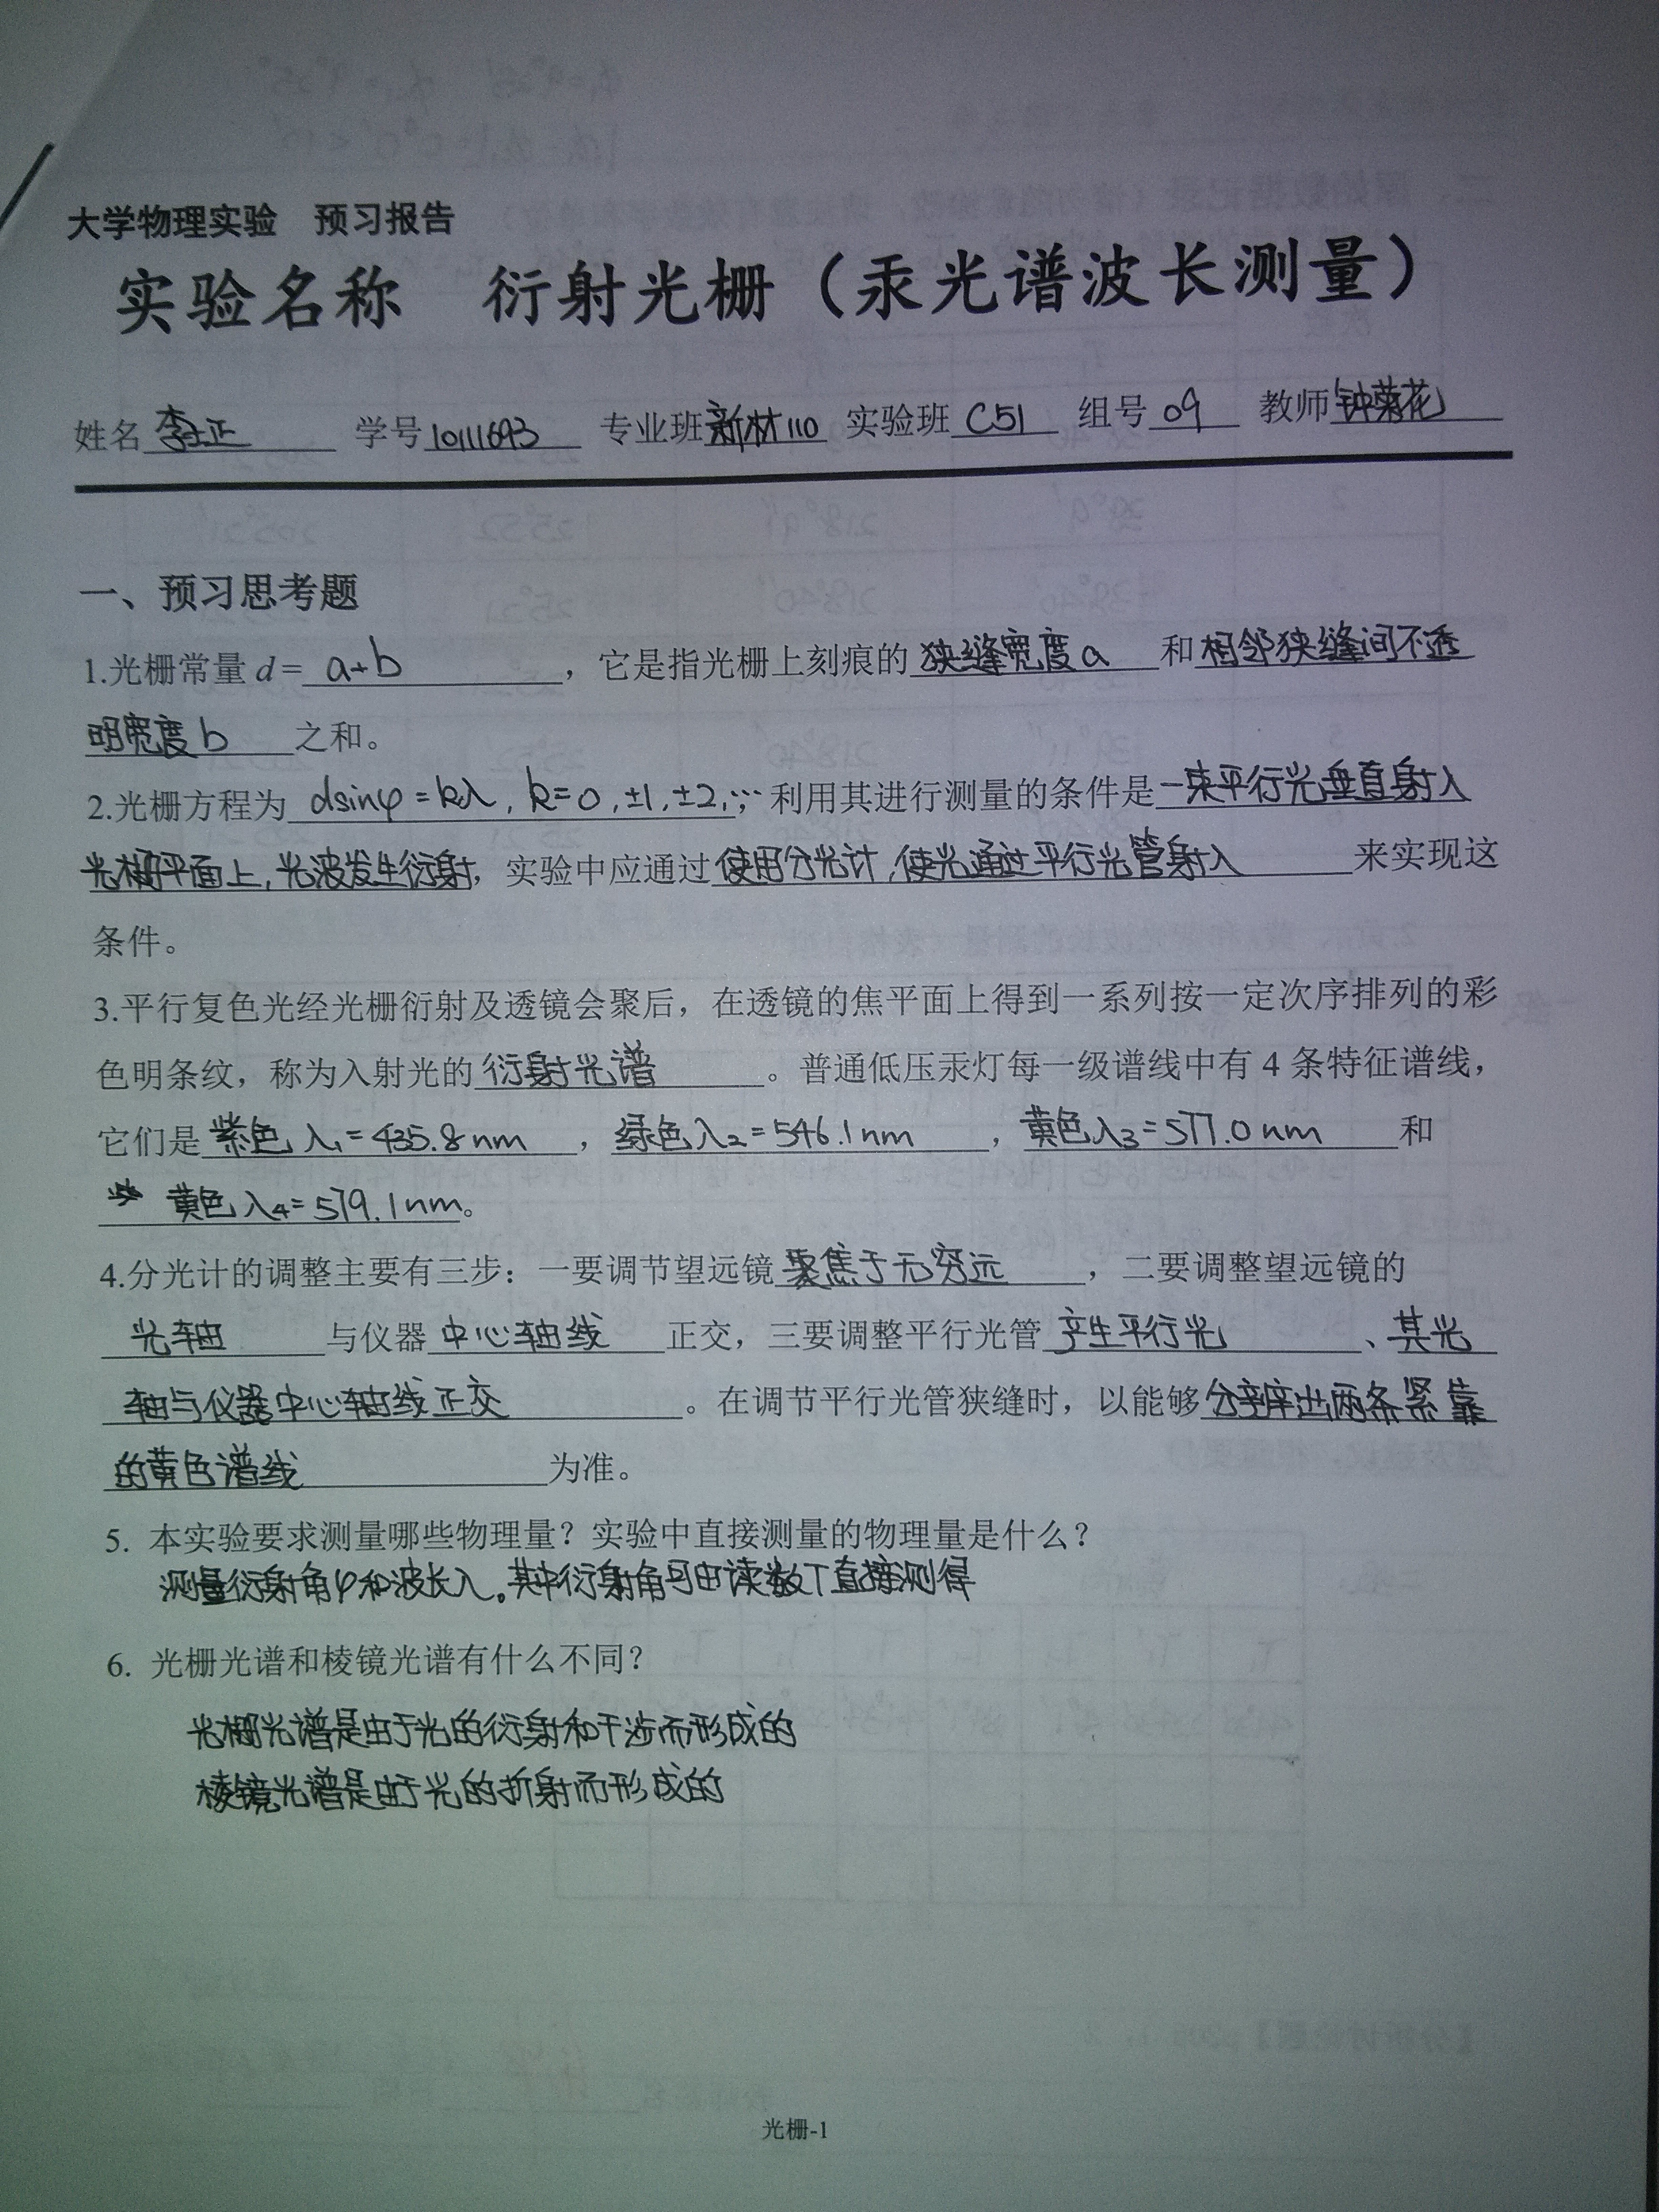 大学物理实验 预习报告
实验名称 衍射光栅（汞光谱波长测量）
姓名 李正 学号 10111693 专业班 新材110 实验班 C51 组号 09 教师 钟菊花
一、预习思考题
1.光栅常量 d = a+b ，它是指光栅上刻痕的 狭缝宽度a 和 相邻狭缝间不透
明宽度b 之和。
2.光栅方程为 dsinφ=kλ, k=0,±1,±2,… 利用其进行测量的条件是 一束平行光垂直射入
光栅平面上,光波发生衍射，实验中应通过 使用分光计,使光通过平行光管射入 来实现这
条件。
3.平行复色光经光栅衍射及透镜会聚后，在透镜的焦平面上得到一系列按一定次序排列的彩
色明条纹，称为入射光的 衍射光谱 。普通低压汞灯每一级谱线中有 4 条特征谱线，
它们是 紫色 λ1=435.8nm ， 绿色 λ2=546.1nm ， 黄色 λ3=577.0nm 和
黄色 λ4=579.1nm。
4.分光计的调整主要有三步：一要调节望远镜 聚焦于无穷远 ，二要调整望远镜的
光轴 与仪器 中心轴线 正交，三要调整平行光管 产生平行光 、其光
轴与仪器中心轴线正交 。在调节平行光管狭缝时，以能够 分辨出两条紧靠
的黄色谱线 为准。
5. 本实验要求测量哪些物理量？实验中直接测量的物理量是什么？
测量衍射角φ和波长λ。其中衍射角可由读数T直接测得
6. 光栅光谱和棱镜光谱有什么不同？
光栅光谱是由于光的衍射和干涉而形成的
棱镜光谱是由于光的折射而形成的
光栅-1